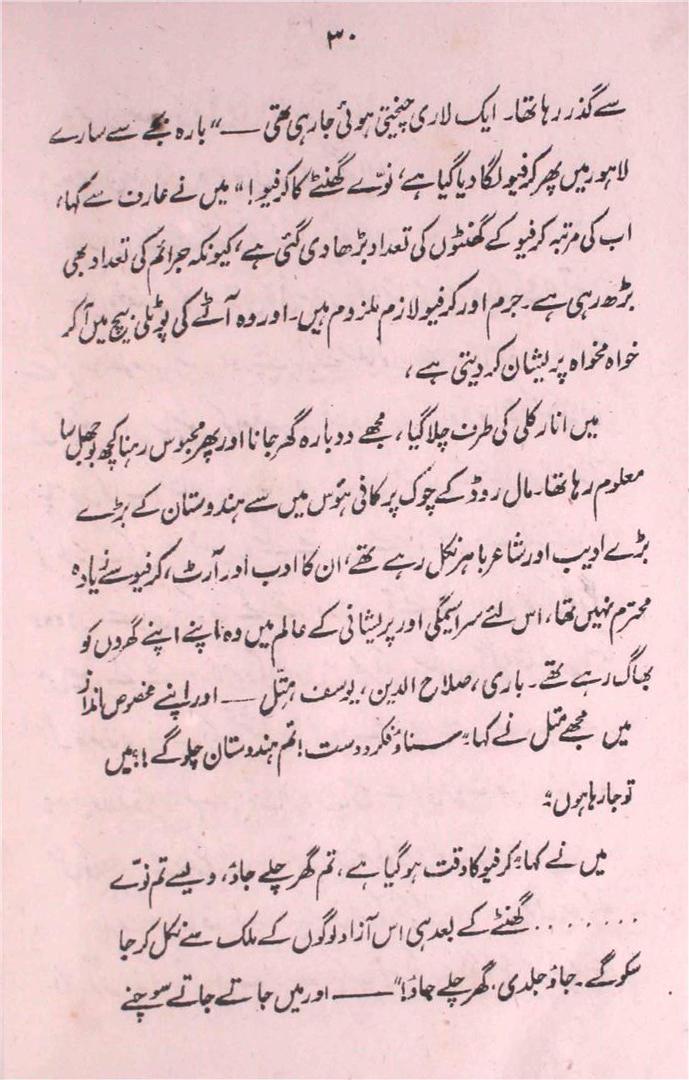 ۳۰
سے گذر رہا تھا۔ ایک لاری چیختی ہوئی جا رہی تھی — "بارہ بجے سے سارے
لاہور میں پھر کرفیو لگا دیا گیا ہے، نوّے گھنٹے کا کرفیو!" میں نے عارف سے کہا،
اب کی مرتبہ کرفیو کے گھنٹوں کی تعداد بڑھا دی گئی ہے، کیونکہ جرائم کی تعداد بھی
بڑھ رہی ہے۔ جرم اور کرفیو لازم ملزوم ہیں۔ اور وہ آٹے کی پوٹلی بیچ میں آ کر
خواہ مخواہ پریشان کر دیتی ہے،
میں انارکلی کی طرف چلا گیا، مجھے دوبارہ گھر جانا اور پھر محبوس رہنا کچھ بوجھل سا
معلوم رہا تھا۔ مال روڈ کے چوک پر کافی ہوس میں سے ہندوستان کے بڑے
بڑے ادیب اور شاعر باہر نکل رہے تھے، ان کا ادب اور آرٹ، کرفیو سے زیادہ
محترم نہیں تھا، اس لئے سراسیمگی اور پریشانی کے عالم میں وہ اپنے اپنے گھروں کو
بھاگ رہے تھے۔ باری، صلاح الدین، یوسف، متّل — اور اپنے مخصوص انداز
میں مجھے متل نے کہا "سناؤ فکر دوست! تم ہندوستان چلو گے؟! میں
تو جا رہا ہوں"
میں نے کہا "کرفیو کا وقت ہو گیا ہے، تم گھر چلے جاؤ، ویسے تم نوّے
. . . . . . . گھنٹے کے بعد ہی اس آزاد لوگوں کے ملک سے نکل کر جا
سکو گے۔ جاؤ جلدی، گھر چلے جاؤ!" —— اور میں جاتے جاتے سوچنے